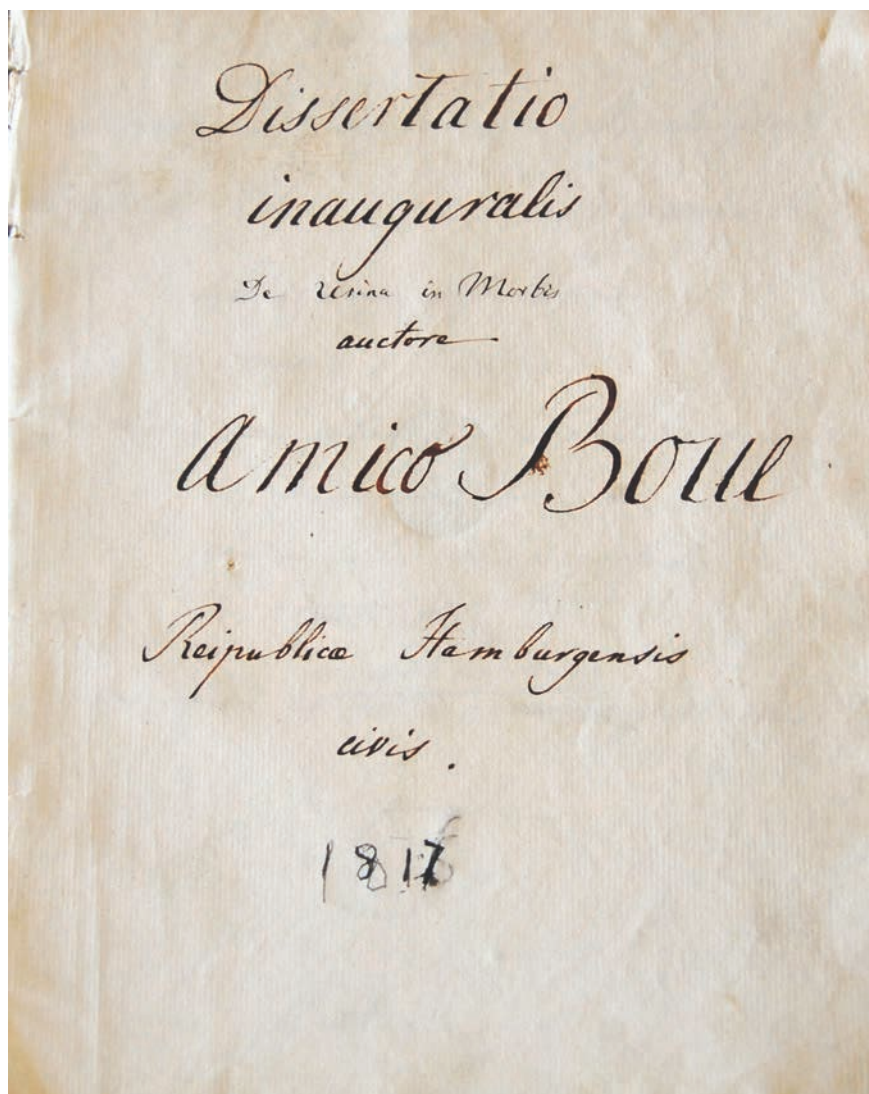 Dissertatio
inauguralis
De Urina in Morbis
auctore
Amico Boue
Reipublicæ Hamburgensis
civis.
1817